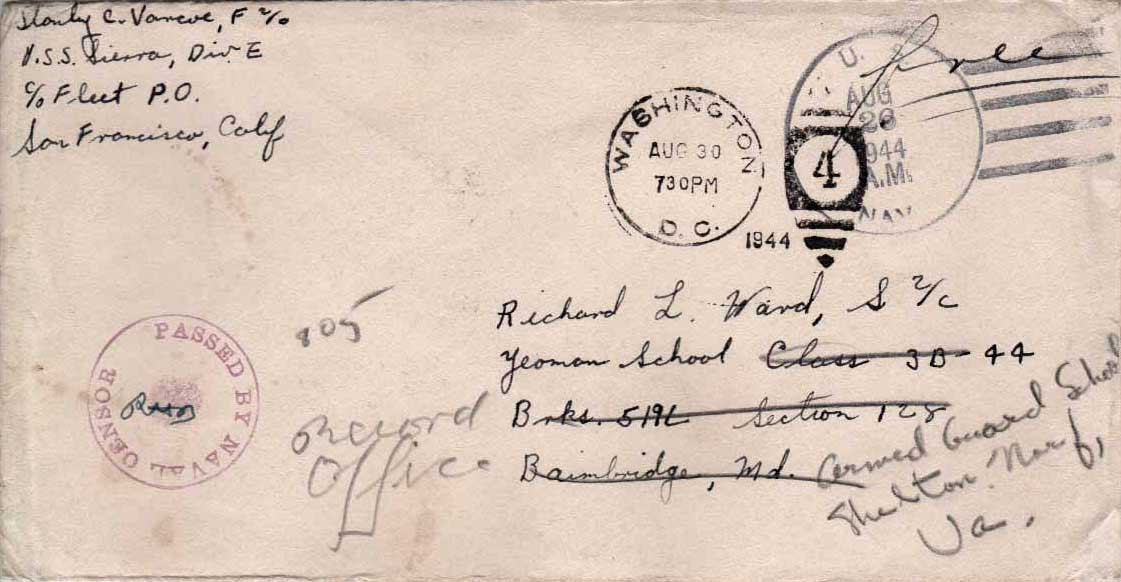 Stanley C. Vancve, F 2/c
U.S.S. Sierra, Div E
c/o Fleet P.O.
San Francisco, Calif
Free
WASHINGTON
AUG 30
730PM
D.C.
1944
4
U. S.
AUG
28
1944
A.M.
NAV
Richard L. Ward, S 2/c
Yeoman School Class 3B-44
Brks. 519L Section 128
Baimbridge, Md.
Armed Guard School
Shelton. Norf,
Va.
805
Record
Office
PASSED BY NAVAL CENSOR